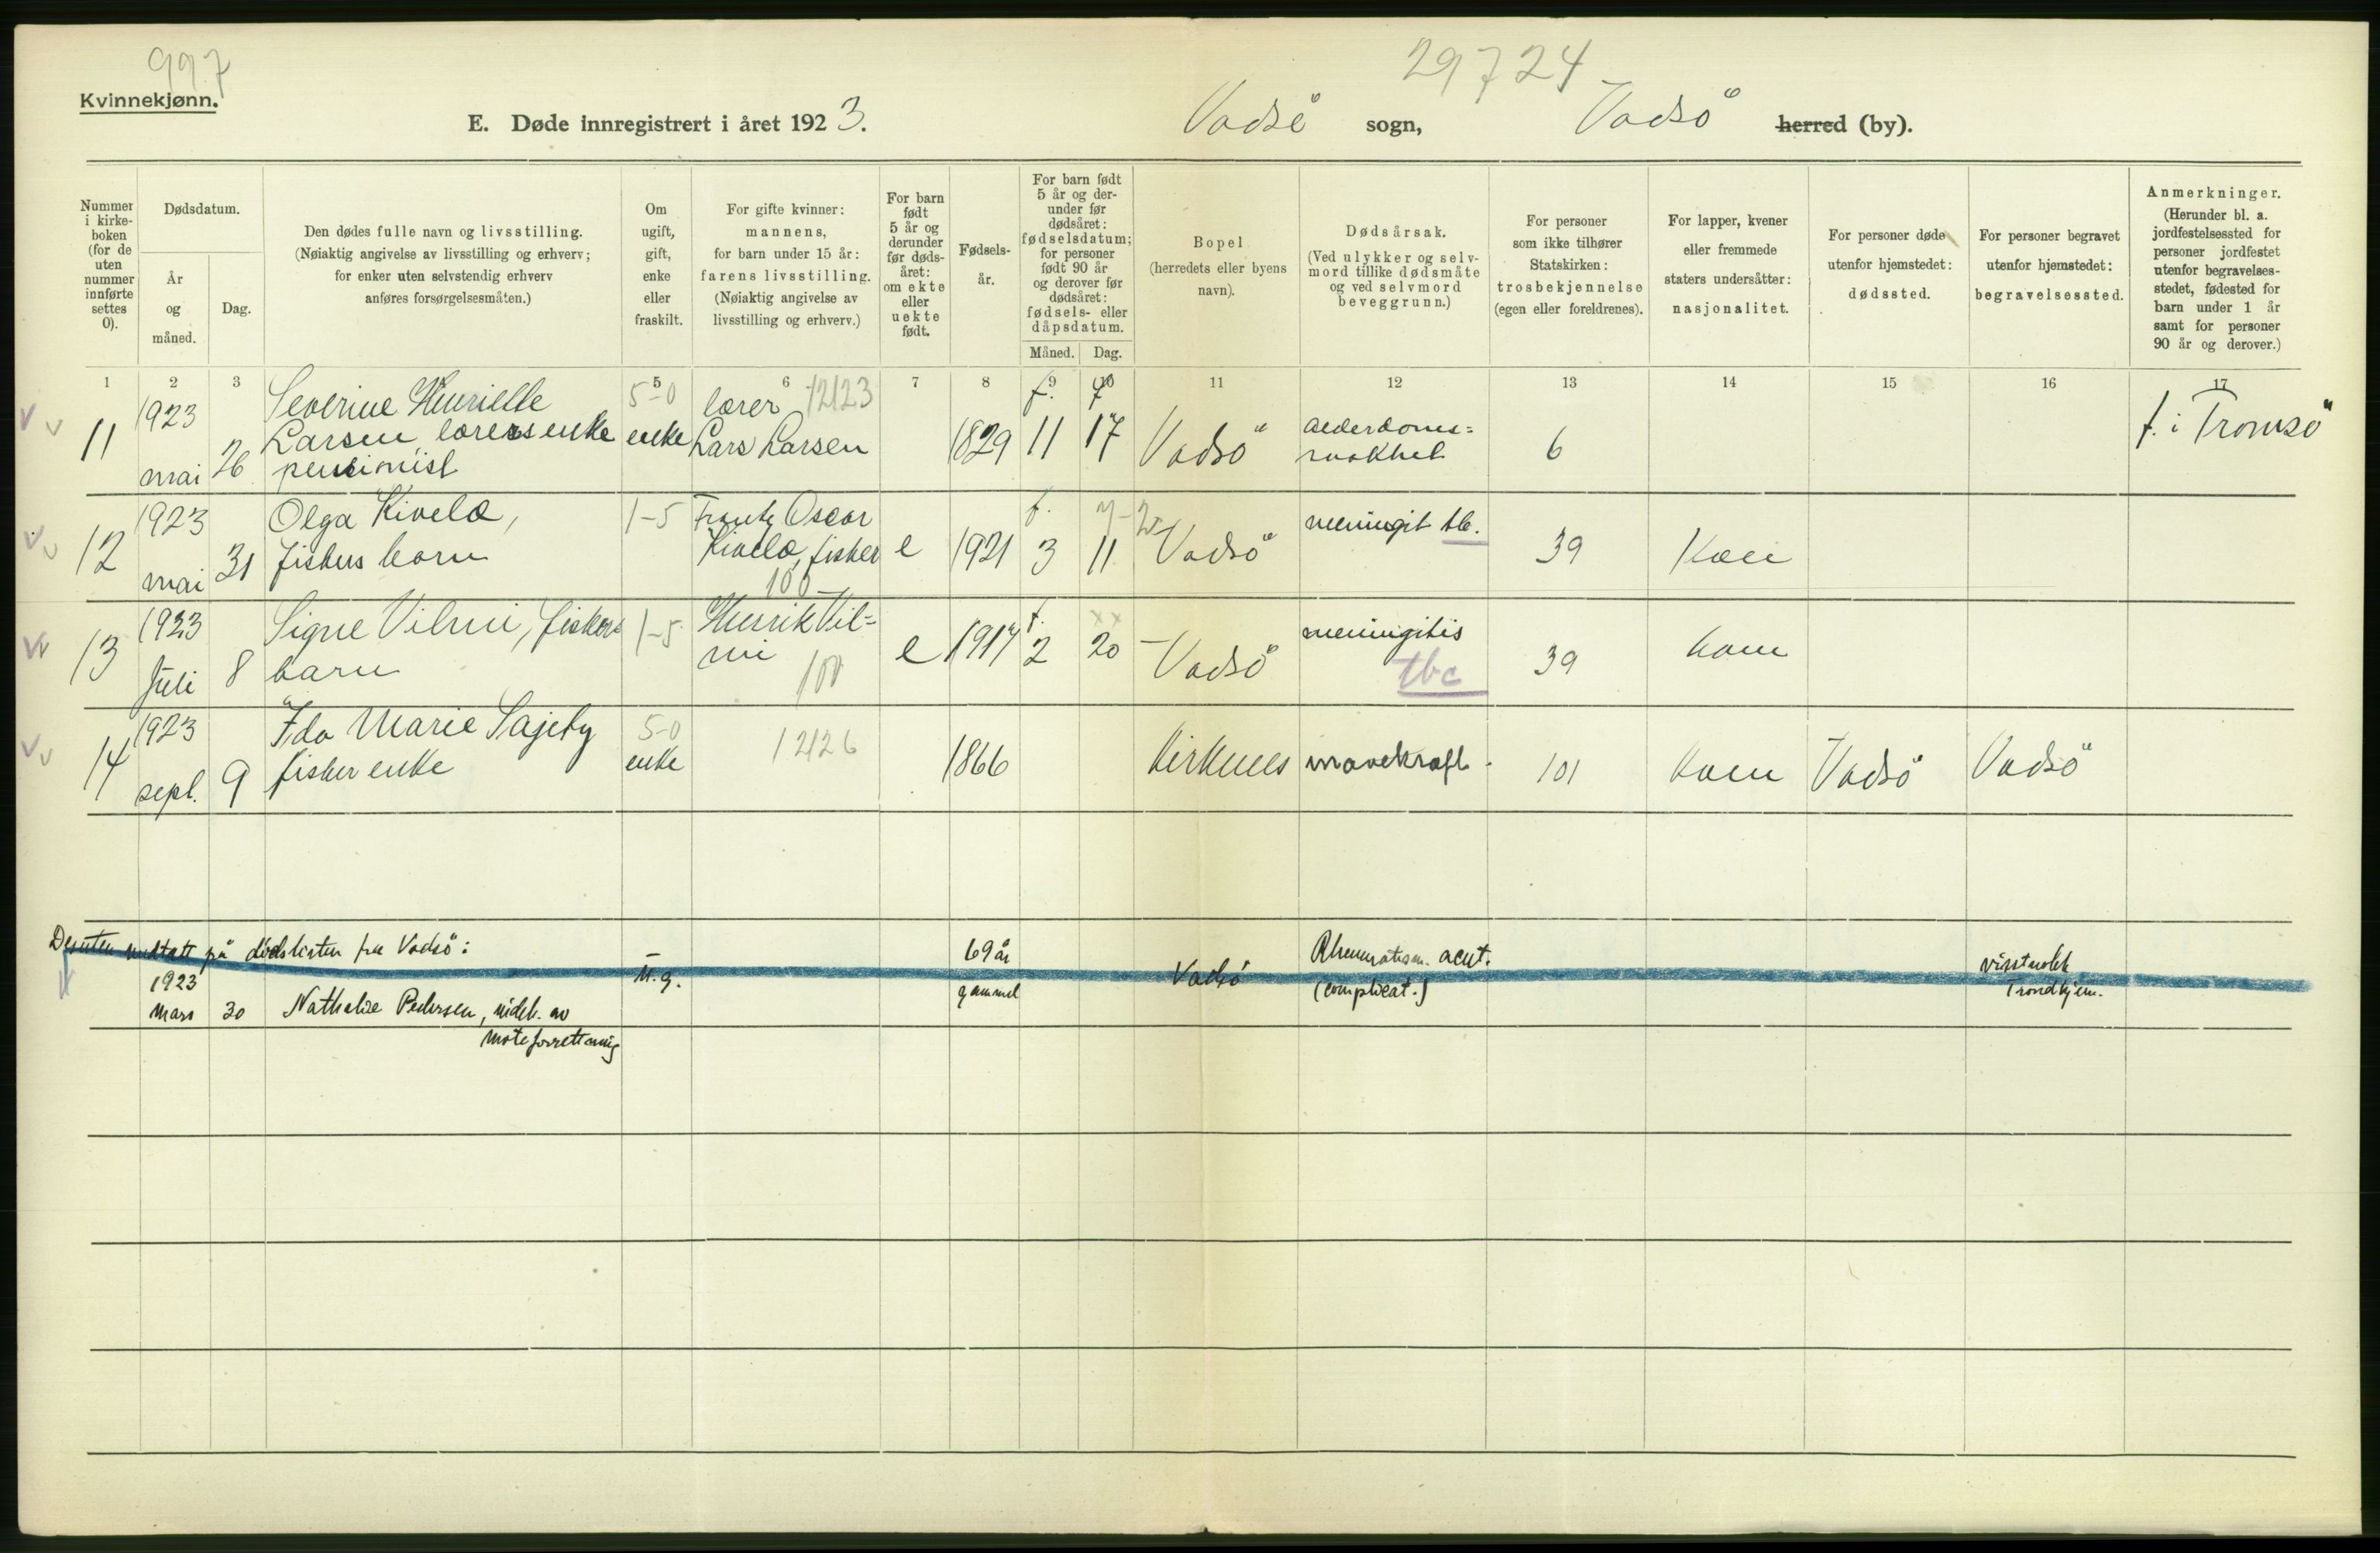 997
29724
Kvinnekjønn.
E. Døde innregistrert i året 1923. Vadsö sogn, Vadsö herred (by).
Nummer i kirkeboken (for de uten nummer innførte settes 0).
Dødsdatum.
År og måned.
Dag.
Den dødes fulle navn og livsstilling.
(Nøiaktig angivelse av livsstilling og erhverv;
for enker uten selvstendig erhverv
anføres forsørgelsesmåten.)
Om ugift, gift, enke eller fraskilt.
For gifte kvinner:
mannens,
for barn under 15 år:
farens livsstilling.
(Nøiaktig angivelse av
livsstilling og erhverv.)
For barn født 5 år og derunder før dødsåret: om ekte eller uekte født.
Fødselsår.
For barn født 5 år og derunder før dødsåret: fødselsdatum; for personer født 90 år og derover før dødsåret: fødsels- eller dåpsdatum.
Måned. Dag.
Bopel
(herredets eller byens
navn).
Dødsårsak.
(Ved ulykker og selvmord tillike dødsmåte og ved selvmord beveggrunn.)
For personer
som ikke tilhører
Statskirken:
trosbekjennelse
(egen eller foreldrenes).
For lapper, kvener
eller fremmede
staters undersåtter:
nasjonalitet.
For personer døde
utenfor hjemstedet:
dødssted.
For personer begravet
utenfor hjemstedet:
begravelsessted.
Anmerkninger.
(Herunder bl. a. jordfestelsessted for personer jordfestet utenfor begravelsesstedet, fødested for barn under 1 år samt for personer 90 år og derover.)
1 2 3 5 6 7 8 9 10 11 12 13 14 15 16 17
11 1923 mai 26 Severine Henriette Larsen lærers enke pensionist 5-0 enke lærer Lars Larsen 12123 1829 f. 11 17 Vadsö alderdoms= svakhet 6 f. i Tromsö
12 1923 mai 31 Olga Kivelæ, fiskers barn 1-5 Frantz Oscar Kivelæ, fisker 100 e 1921 f. 3 11 Vadsö meningit tb. 39 Kven
13 1923 Juli 8 Signe Vilmi, fiskers barn 1-5 Henrik Vil= mi 100 e 1917 f. 2 20 xx Vadsö meningitis tbc 39 Kven
14 1923 sept. 9 Ida Marie Sajeby fisker enke 5-0 enke 12126 1866 Kirkenes mavekræft. 101 Kven Vadsö Vadsö
Desuten medtatt på dødslisten fra Vadsö:
1923 mars 30 Nathalie Pedersen, indeh. av moteforretning u.g. 69 år gammel Vadsö Rheumatism. acut. (complicat.) visstnokk Trondhjem.